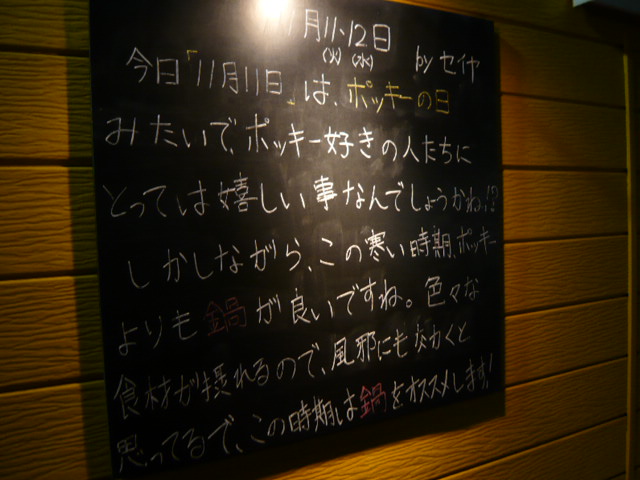 11月11・12日
(火)(水) byセイヤ
今日「11月11日」は、ポッキーの日
みたいで、ポッキー好きの人たちに
とっては嬉しい事なんでしょうかね!?
しかしながら、この寒い時期、ポッキー
よりも鍋が良いですね。色々な
食材が摂れるので、風邪にも効くと
思ってるで、この時期は鍋をオススメします!